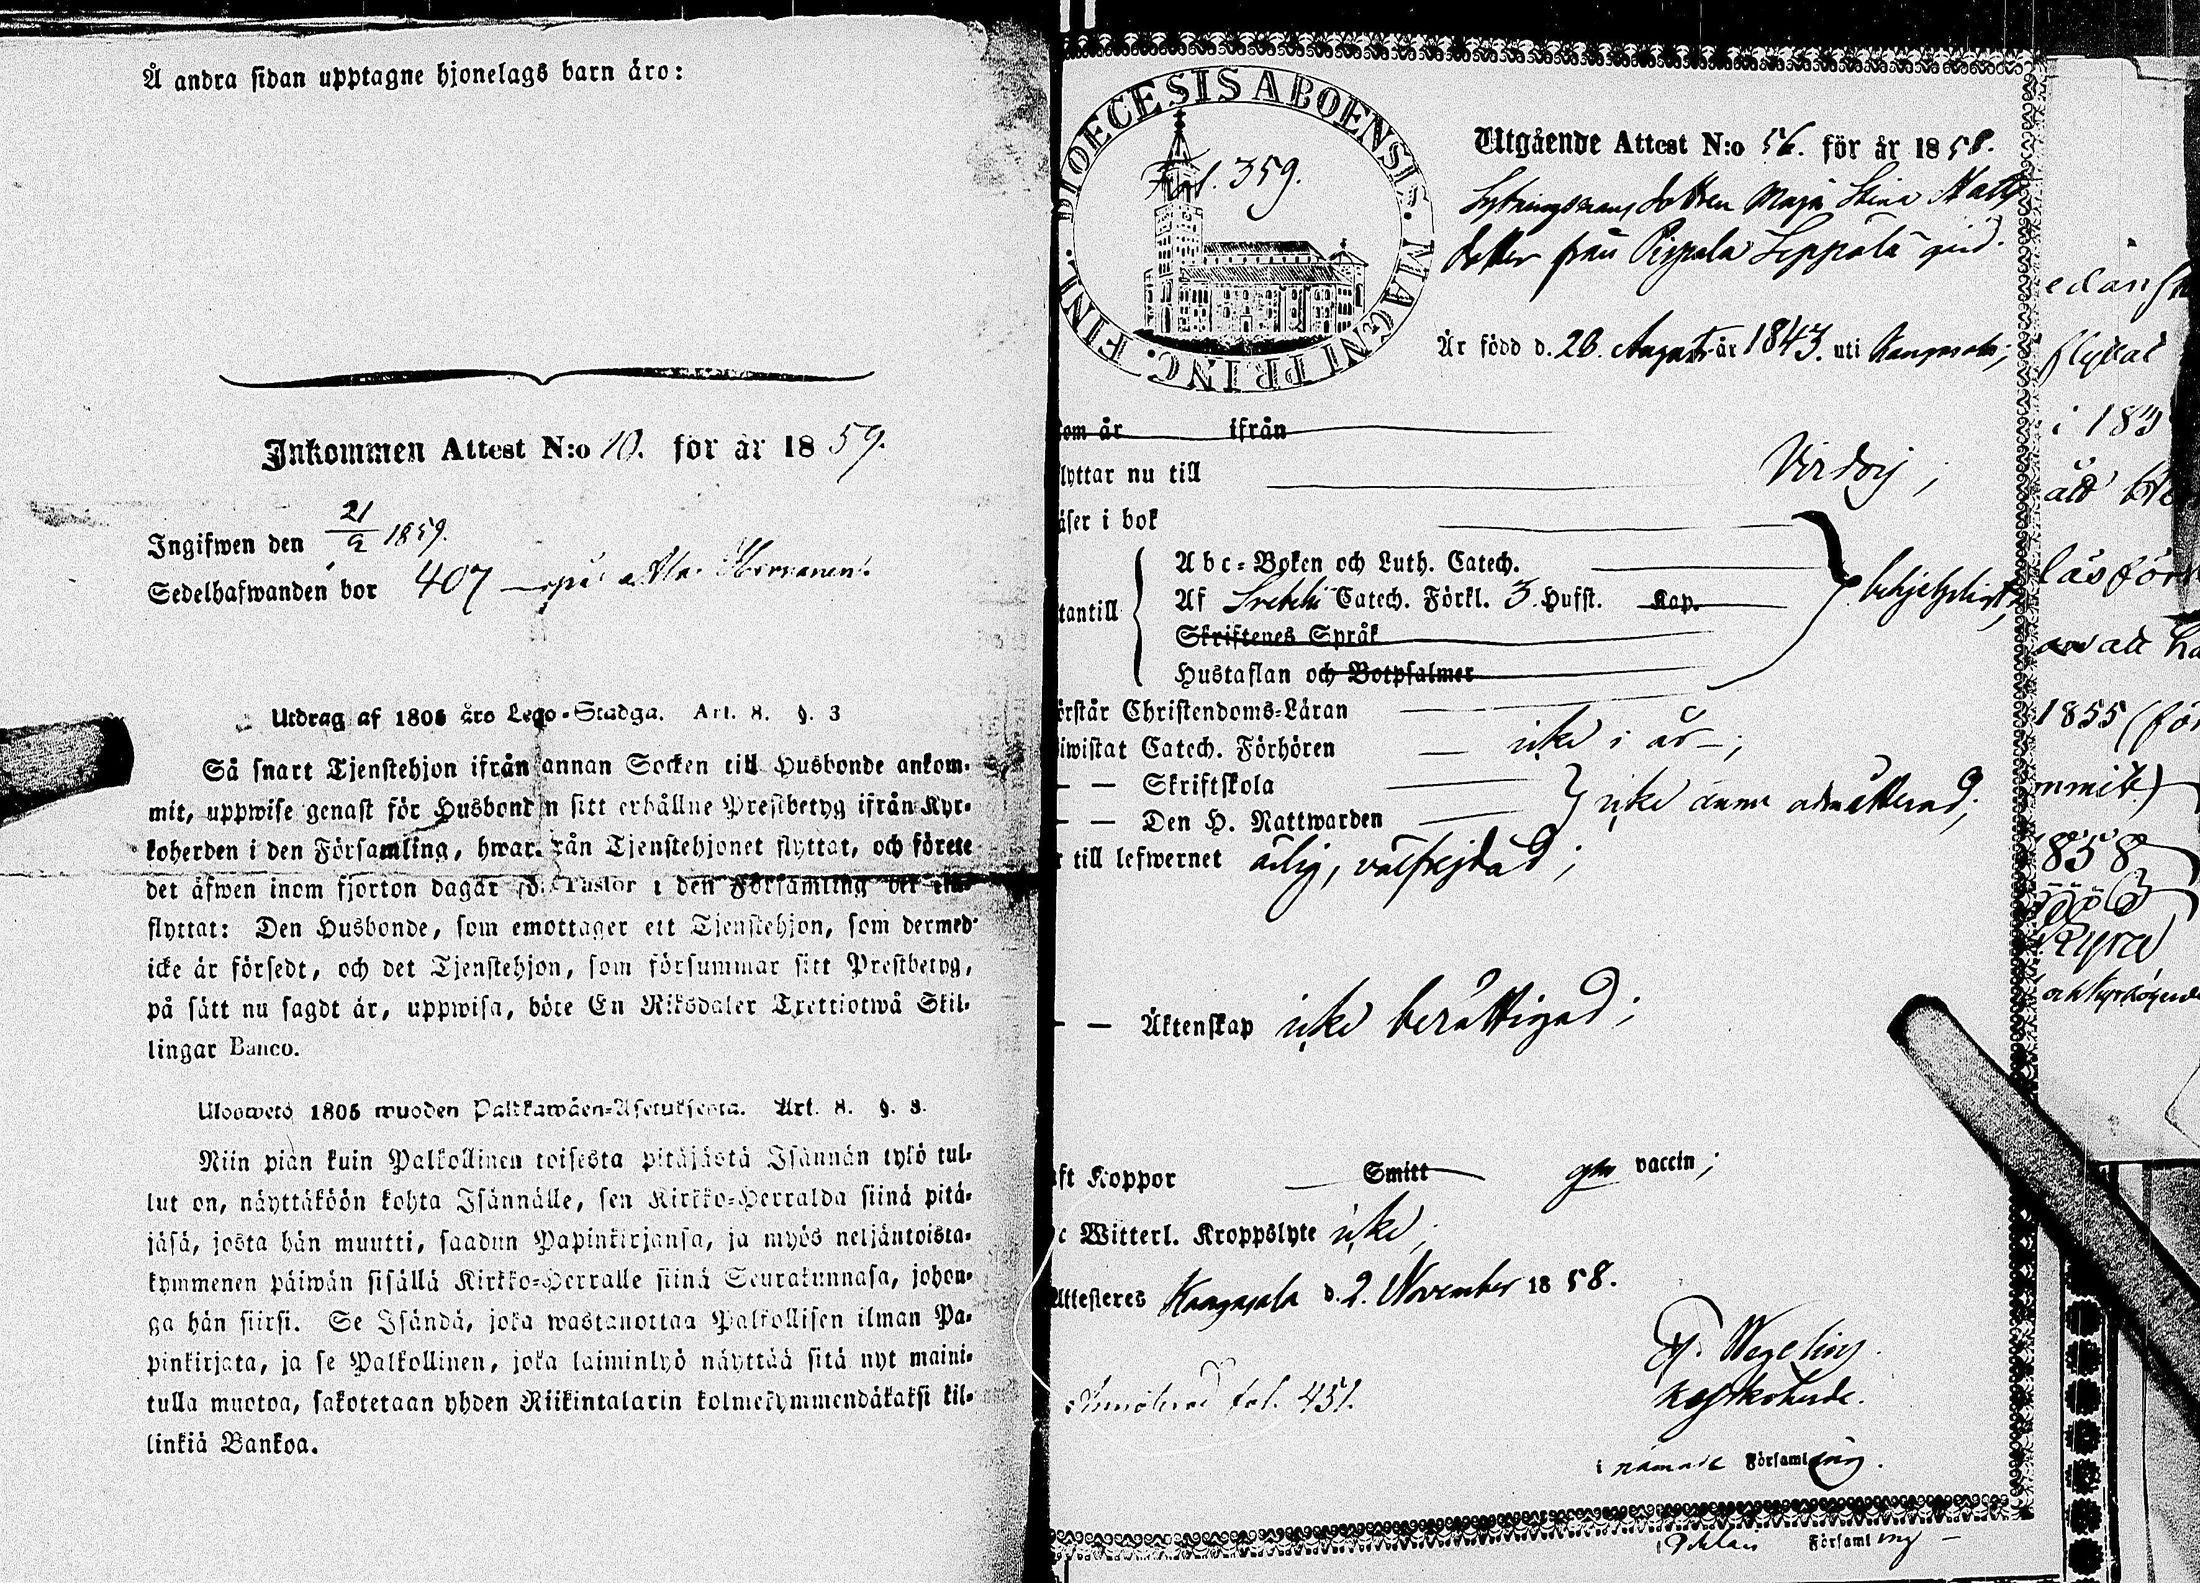 Å andra sidan upptagne hjonelags barn äro:
Inkommen Attest N:o 10. för år 1859.
Ingifwen den 21/2 1859.
Sedelhafwanden bor 407
Utdrag af 1805 års Lego-Stadga. Art. 8. §. 3
Så snart Tjenstehjon ifrån annan Socken till Husbonde ankom-
mit, uppwise genast för Husbonden sitt erhållne Prestbetyg ifrån Kyr-
koherden i den Församling, hwarifrån Tjenstehjonet flyttat, och förete
det äfwen inom fjorton dagar för Pastor i den Församling dit in-
flyttat: Den Husbonde, som emottager ett Tjenstehjon, som dermed
icke är försedt, och det Tjenstehjon, som försummar sitt Prestbetyg,
på sätt nu sagdt är, uppwisa, böte En Riksdaler Trettiotwå Skil-
lingar Banco.
Ulosweto 1805 wuoden Palkkawäen-Asetuksesta. Art. 8. §. 3.
Niin pian kuin Palkollinen toisesta pitäjästä Isännän tykö tul-
lut on, näyttäköön kohta Isännälle, sen Kirkko-Herralda siinä pitä-
jäsä, josta hän muutti, saadun Papinkirjansa, ja myös neljäntoista-
kymmenen päiwän sisällä Kirkko-Herralle siinä Seurakunnasa, johon-
ga hän siirsi. Se Isändä, joka wastanottaa Palkollisen ilman Pa-
pinkirjata, ja se Palkollinen, joka laiminlyö näyttää sitä nyt maini-
tulla muotoa, sakotetaan yhden Riikintalarin kolmekymmendäkaksi kil-
linkiä Bankoa.
DIOECESIS ABOENSIS. MAGNI PRINC. FINL.
Fol. 359.
Utgående Attest N:o 56. för år 1858.
Sytningsmans dottren Maja Stina Matts
dotter från Pispala Seppälä gård.
Är född d. 26. Augusti år 1843. uti Kangasala;
kom år ifrån
lyttar nu till Virdois;
äser i bok
tantill
Abc-Boken och Luth. Catech.
Af Svebelii Catech. Förkl. 3. Hufst. Kap.
Skriftenes Språk
Hustaflan och Botpsalmer
behjelpligt,
örstår Christendoms-Läran
iwistat Catech. Förhören icke i år;
— — Skriftskola
— — Den H. Nattwarden
icke ännu admitterad;
r till lefwernet ärlig, välfrejdad;
— — Äktenskap icke berättigad;
aft Koppor Smitt gm vaccin;
c Witterl. Kroppslyte icke;
Attesteres Kangasala d. 2. November 1858.
Fr. Wegelius.
Kyrkoherde.
i nämnde Församling.
fol. 451.
flyttat
i 183
att
läsför
1855 (för
1858
Församling